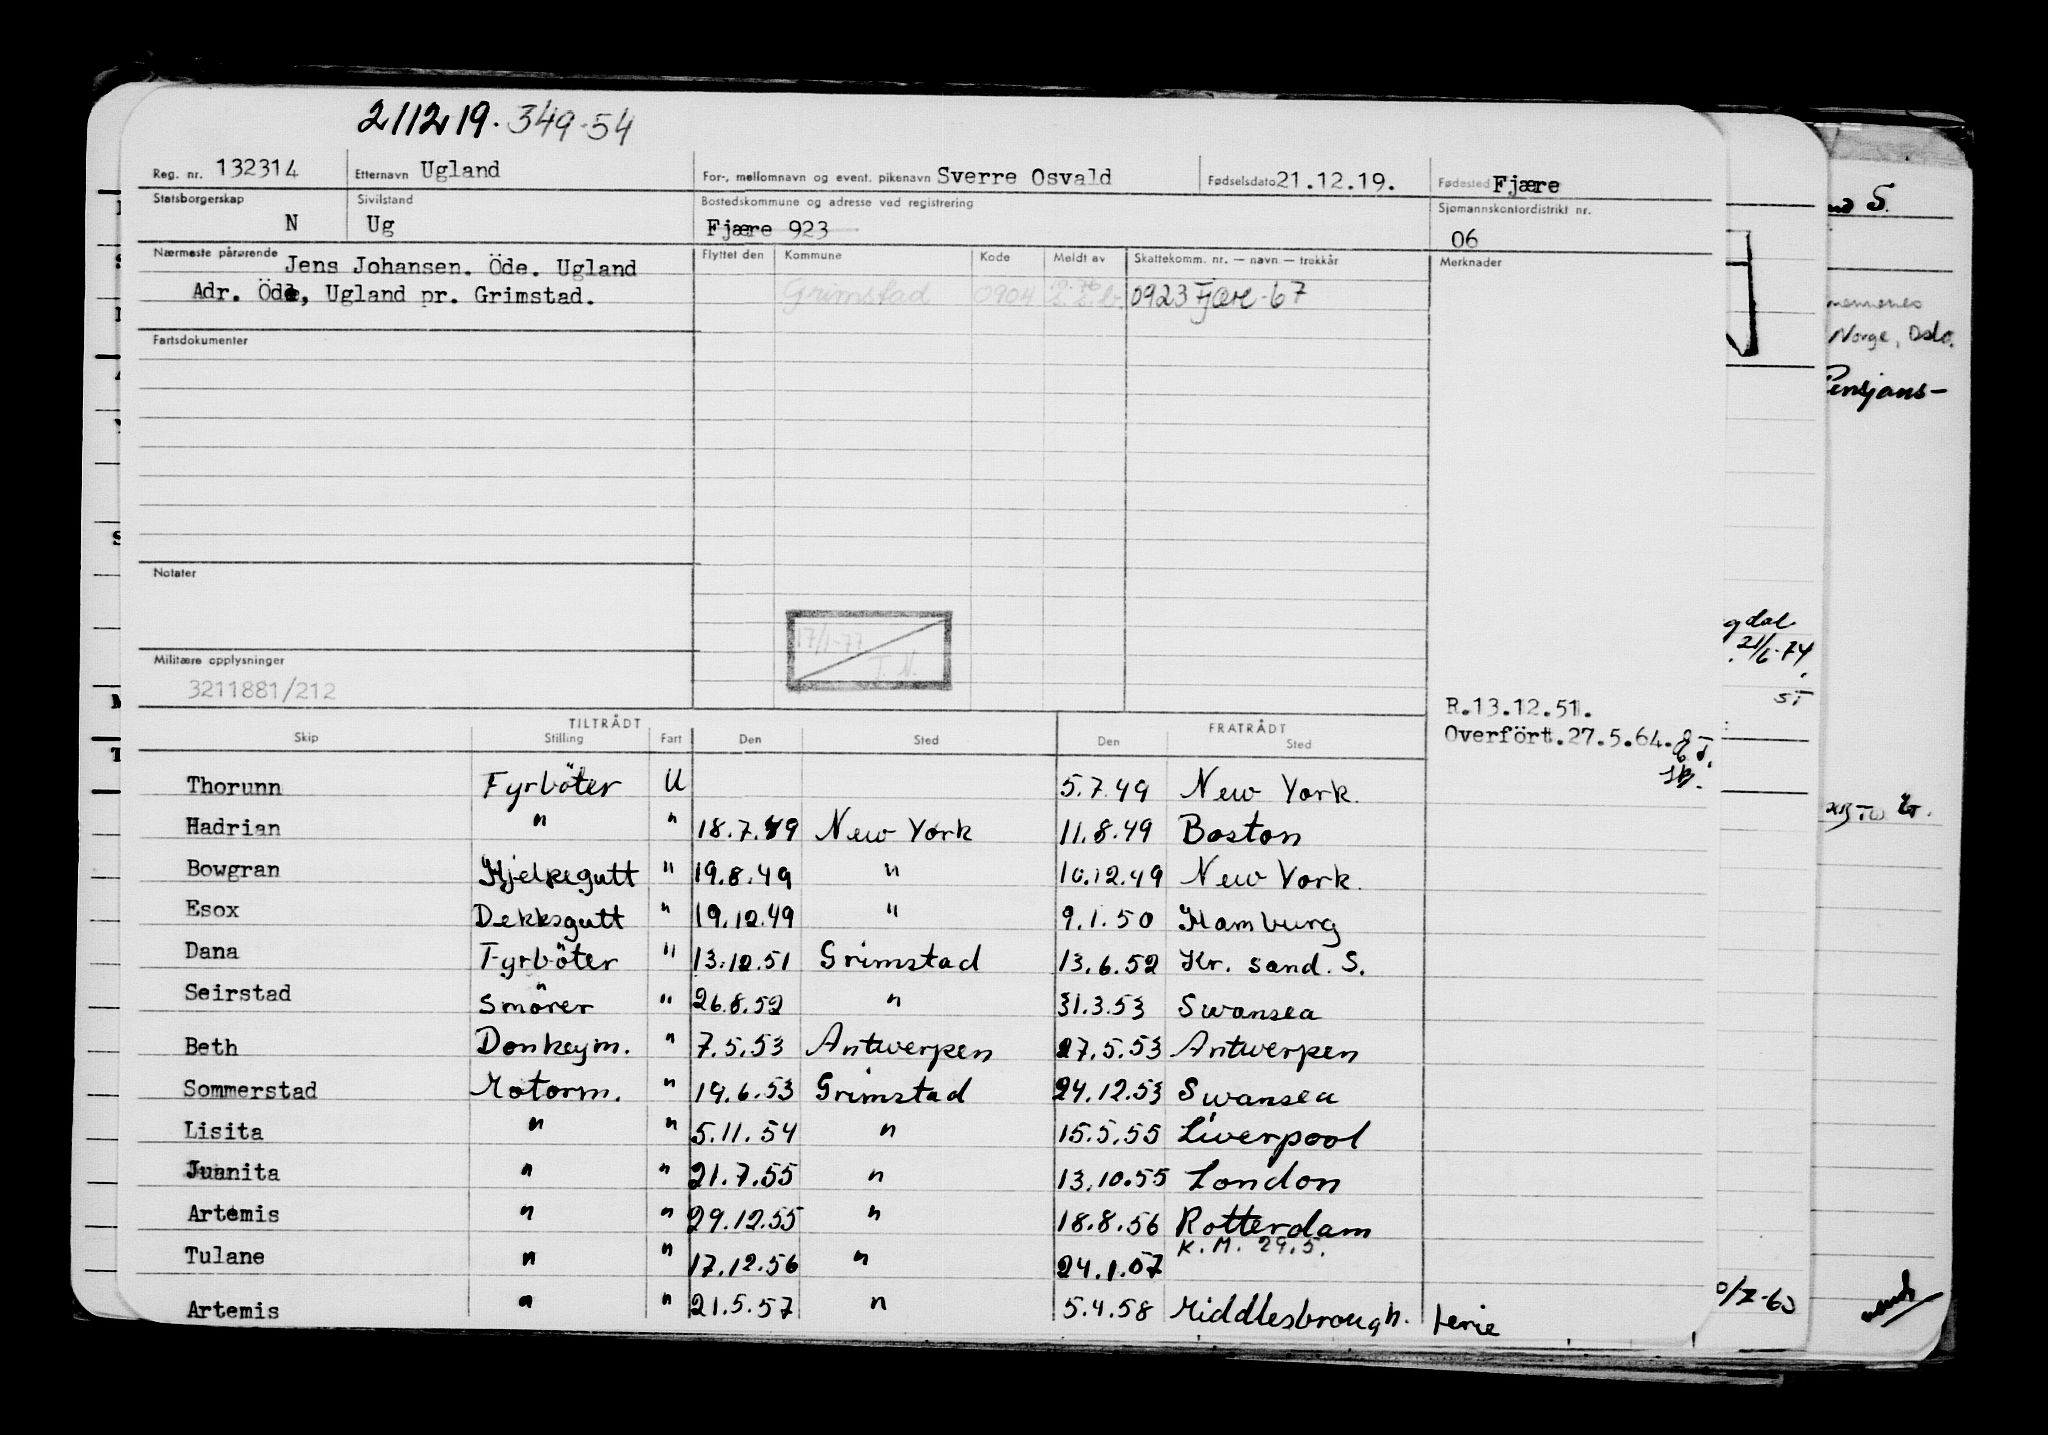 211219.349-54
Reg. nr. 132314 Etternavn Ugland For-, mellomnavn og event. pikenavn Sverre Osvald Fødselsdato 21.12.19. Fødested Fjære
Statsborgerskap N Sivilstand Ug Bostedskommune og adresse ved registrering Fjære 923 Sjømannskontordistrikt nr. 06
Nærmeste pårørende Jens Johansen. Öde. Ugland
Adr. Öde, Ugland pr. Grimstad.
Flyttet den Kommune Kode Meldt av Skattekomm. nr. — navn — trekkår Merknader
Grimstad 0904 0923 Fjære-67
Fartsdokumenter
Notater
17/1-77
Militære opplysninger
3211881/212
R.13.12.51.
Overfört.27.5.64.
TILTRÅDT FRATRÅDT
Skip Stilling Fart Den Sted Den Sted
Thorunn Fyrböter U 5.7.49 New York.
Hadrian " " 18.7.49 New York 11.8.49 Boston
Bowgran Hjelpegutt " 19.8.49 " 10.12.49 New York.
Esox Dekksgutt " 19.12.49 " 9.1.50 Hamburg
Dana Fyrböter " 13.12.51 Grimstad 13.6.52 Kr. sand. S.
Seirstad Smörer " 26.8.52 " 31.3.53 Swansea
Beth Donkeym. " 7.5.53 Antwerpen 27.5.53 Antwerpen
Sommerstad Motorm. " 19.6.53 Grimstad 24.12.53 Swansea
Lisita " " 5.11.54 " 15.5.55 Liverpool
Juanita " " 21.7.55 " 13.10.55 London
Artemis " " 29.12.55 " 18.8.56 Rotterdam
K.M. 29.5.
Tulane " " 17.12.56 " 24.1.57
Artemis " " 21.5.57 " 5.4.58 Middlesbrough. ferie
S.
Norge, Oslo.
Pensjons-
21/6-74
ST